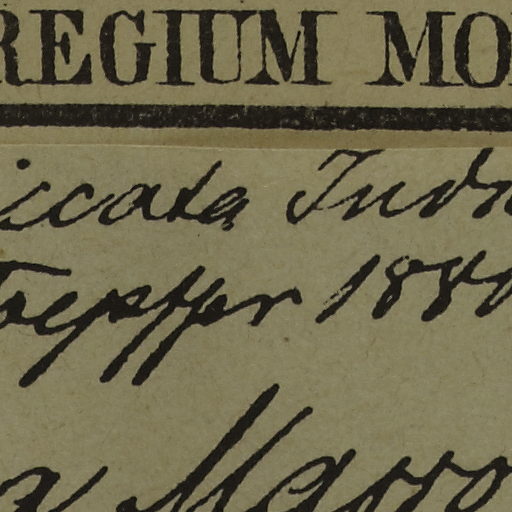 REGIUM MO
iccata Indn
Toepffer 1880
a Marro